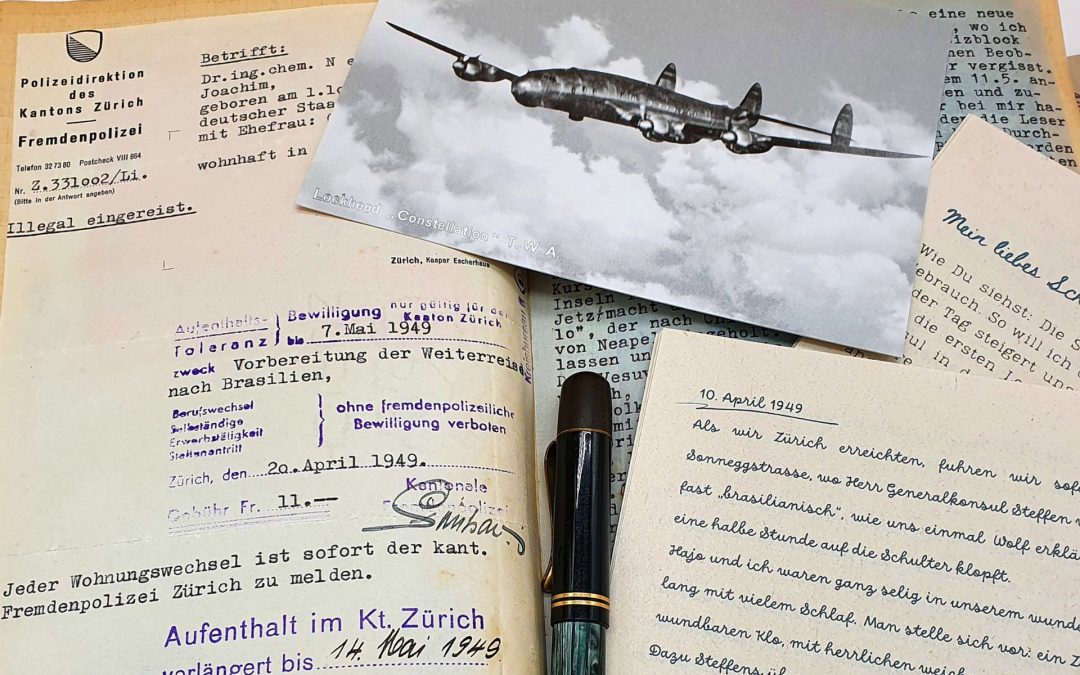 Polizeidirektion
des
Kantons Zürich
Fremdenpolizei
Telefon 32 73 80 Postcheck VIII 864
Nr. Z.331oo2/Li.
(Bitte in der Antwort angeben)
Illegal eingereist.
Betrifft:
Dr.ing.chem. N e
Joachim,
geboren am 1.1o
deutscher Staa
mit Ehefrau:
wohnhaft in
Zürich, Kaspar Escherhaus
Aufenthalts- Bewilligung nur gültig für den
Toleranz bis 7. Mai 1949 Kanton Zürich
zweck Vorbereitung der Weiterreise
nach Brasilien,
Berufswechsel
Selbständige
Erwerbstätigkeit
Stellenantritt
ohne fremdenpolizeiliche
Bewilligung verboten
Zürich, den 2o. April 1949.
Gebühr Fr. 11.--
Kantonale
Fremdenpolizei
Jeder Wohnungswechsel ist sofort der kant.
Fremdenpolizei Zürich zu melden.
Aufenthalt im Kt. Zürich
verlängert bis 14. Mai 1949
Lockheed „Constellation" T.W.A.
eine neue
, wo ich
izblock
nen Beob-
r vergisst.
em 11.5. an-
en und zu-
r bei mir ha-
der die Leser
Durch-
orden
Kurs
Inseln
Jetzt macht
lo", der nach
von Neapel
lassen und
Vesuv
Mein liebes Sch
Wie Du siehst: Die S
ebrauch. So will ich
der Tag steigert uns
die ersten
in d
10. April 1949
Als wir Zürich erreichten, fuhren wir sofo
Sonneggstrasse, wo Herr Generalkonsul Steffen
fast „brasilianisch", wie uns einmal Wolf erklä
eine halbe Stunde auf die Schulter klopft.
Hajo und ich waren ganz selig in unserem wunde
lang mit vielem Schlaf. Man stelle sich vor: ein Z
wundbaren Klo, mit herrlichen weich
Dazu Steffens